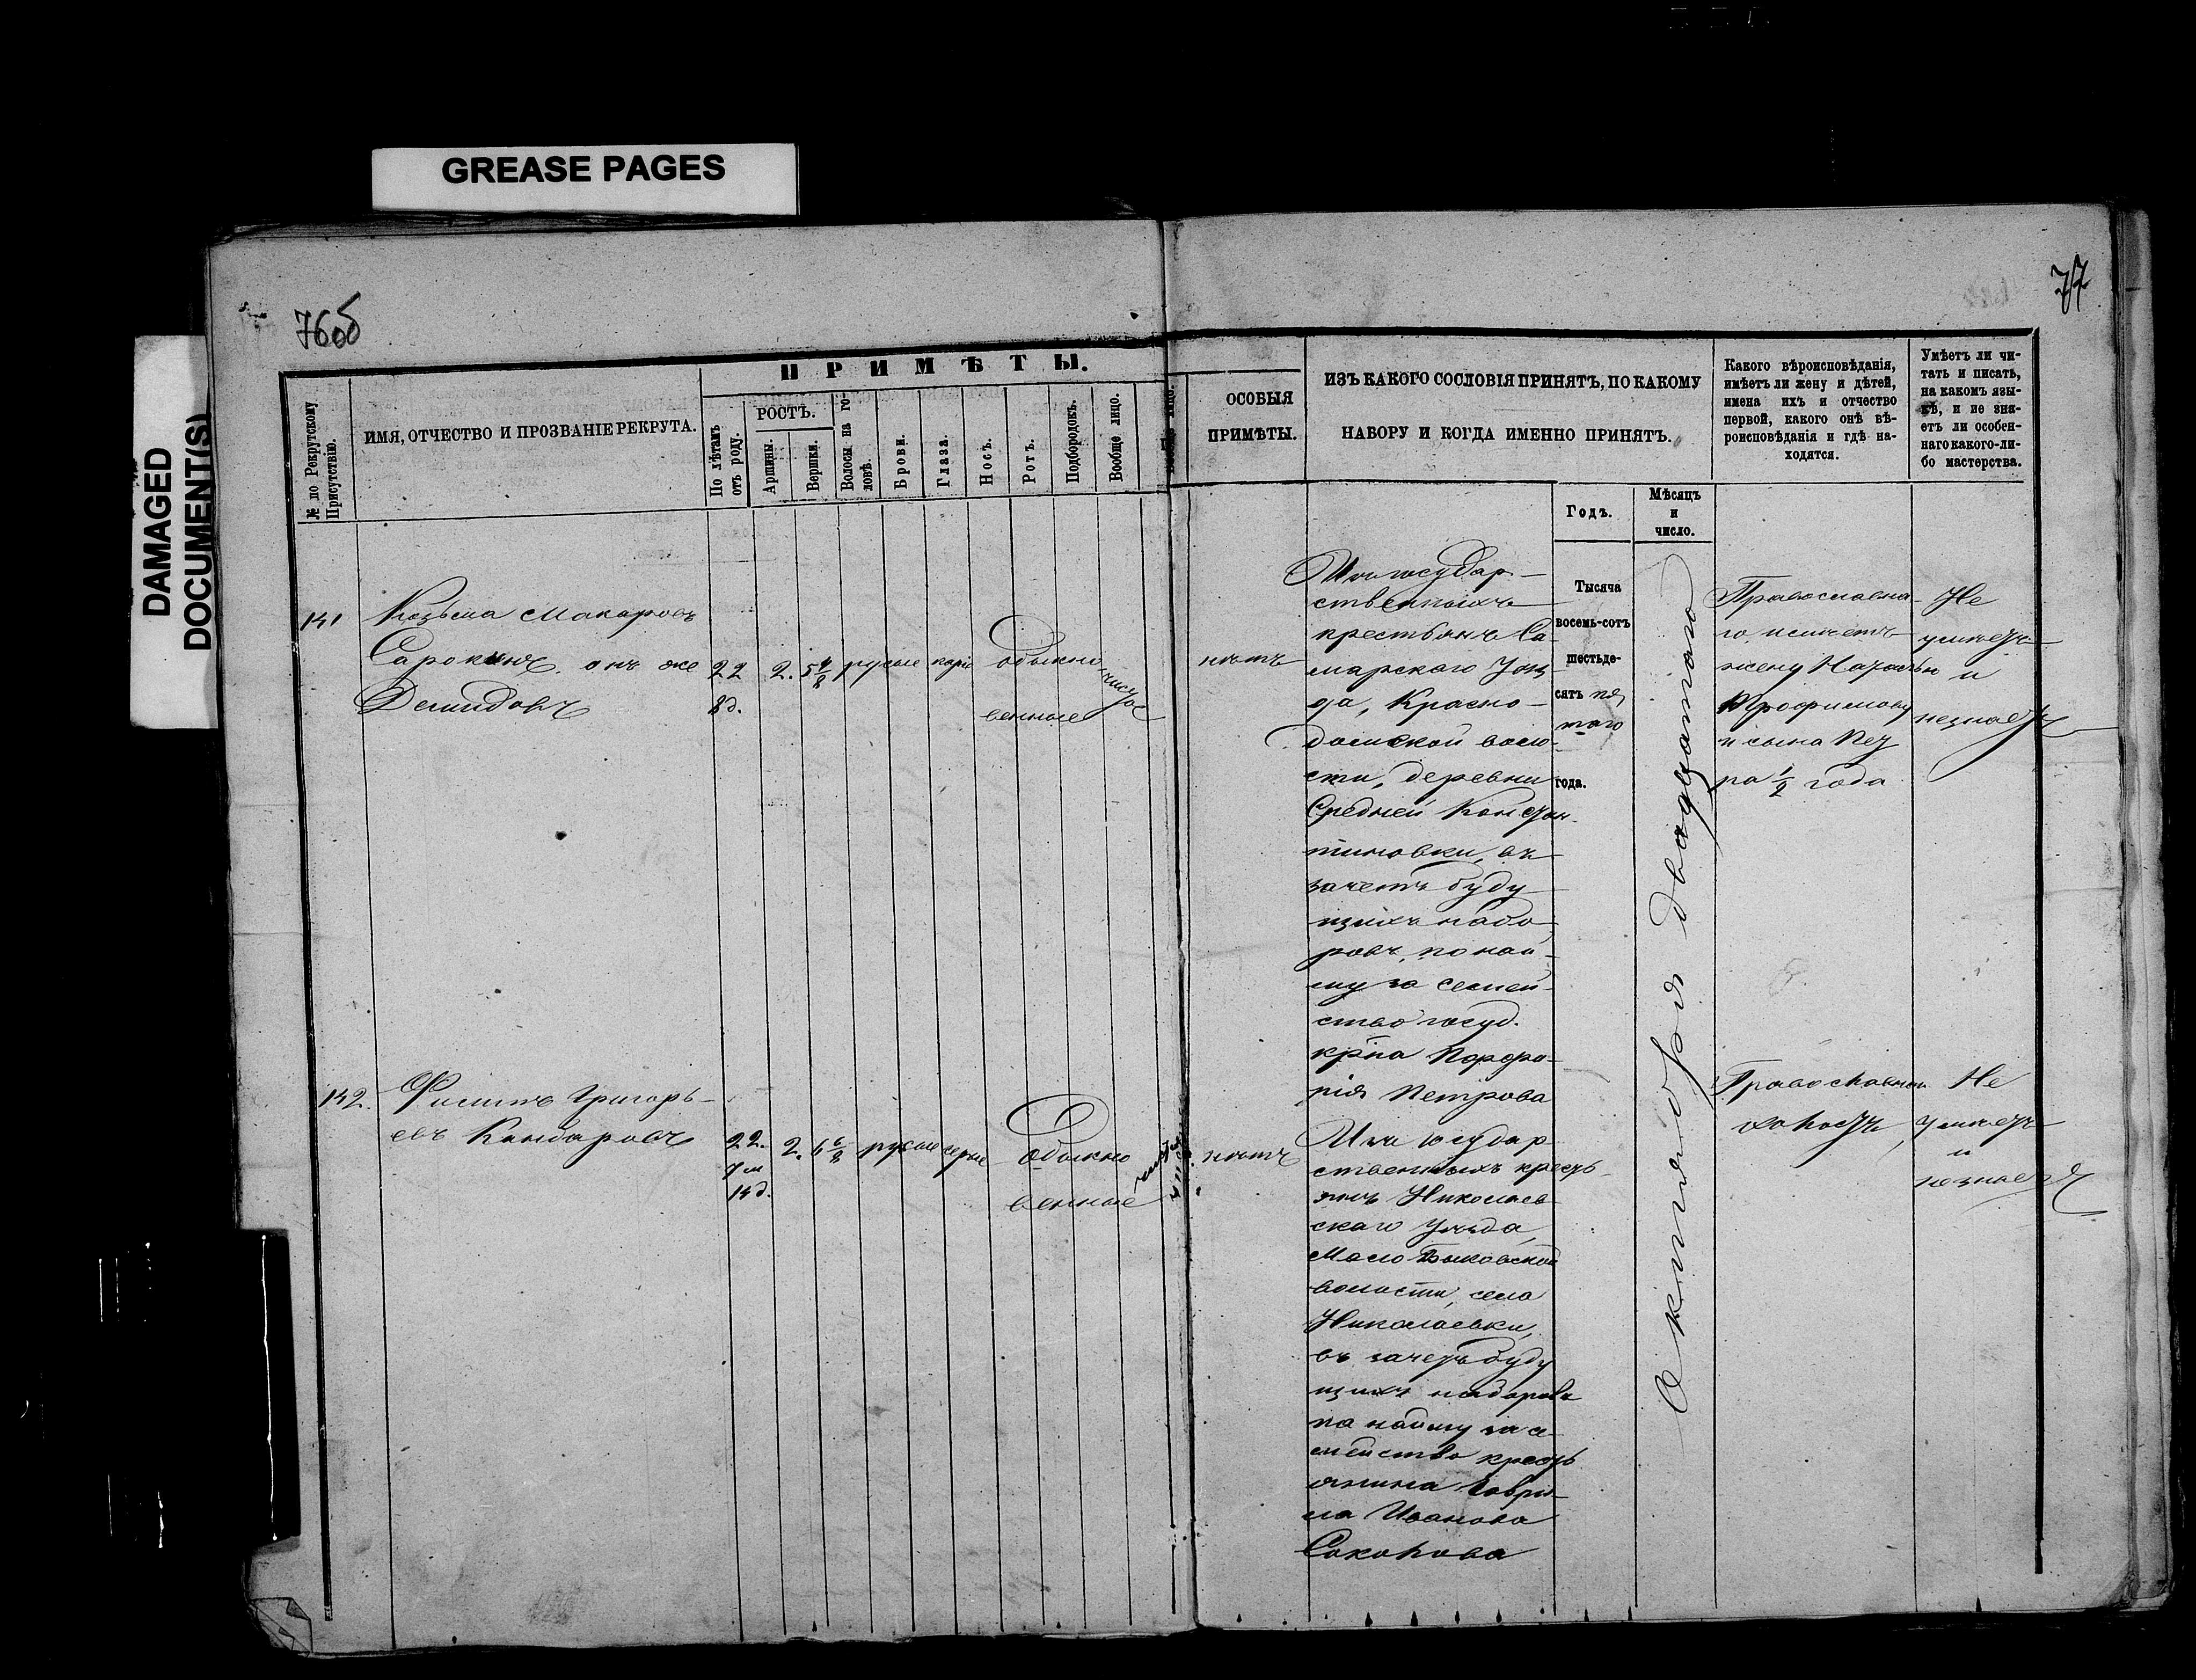 GREASE PAGES
DAMAGED
DOCUMENT(S)
76об
77
ПРИМѢТЫ.
№ по Рекрутскому
Присутствію.
ИМЯ, ОТЧЕСТВО И ПРОЗВАНІЕ РЕКРУТА.
По лѣтамъ
отъ роду.
РОСТЪ.
Аршины.
Вершки.
Волосы на го-
ловѣ.
Брови.
Глаза.
Носъ.
Ротъ.
Подбородокъ.
Вообще лицо.
ОСОБЫЯ
ПРИМѢТЫ.
ИЗЪ КАКОГО СОСЛОВІЯ ПРИНЯТЪ, ПО КАКОМУ
НАБОРУ И КОГДА ИМЕННО ПРИНЯТЪ.
Годъ.
Мѣсяцъ
и
число.
Какого вѣроисповѣданія,
имѣетъ ли жену и дѣтей,
имена ихъ и отчество
первой, какого онѣ вѣ-
роисповѣданія и гдѣ на-
ходятся.
Умѣетъ ли чи-
тать и писать,
на какомъ язы-
кѣ, и не зна-
етъ ли особен-
наго какого-ли-
бо мастерства.
141
Козьма Макаровъ
Сарокинъ онъ же
Демидовъ
22
8д.
2.
русые
каріе
Обыкно
венные
чистое
нѣтъ
Изъ государ-
ственныхъ
крестьянъ Са-
марскаго уѣз
да, Красно-
домской воло-
сти, деревни
Средней Констан-
тиновки, въ
зачетъ буду
щихъ набо
ровъ, по най-
му за семей-
ство госуд.
Петрова
Тысяча
восемь-сотъ
шестьде-
сятъ пя
таго
года.
Октября двадцатаго
Православна-
го, имѣетъ
жену Наталью
Трофимову
и сына Пет
ра ½ года
Не
умѣетъ
и
незнаетъ
142.
Филипъ Григорь-
евъ
22.
7м
14д.
2.
русые
серые
Обыкно
венные
чистое
нѣтъ
Изъ государ
ственныхъ кресть
янъ Николаев
скаго уѣзда,
Мало Быковской
волости, села
Николаевки,
въ зачетъ буду
щихъ наборовъ
по найму за се
мейство кресть
янина Гаври-
ла Иванова
Соколова
Православнаго
холостъ,
Не
умѣетъ
и
незнаетъ